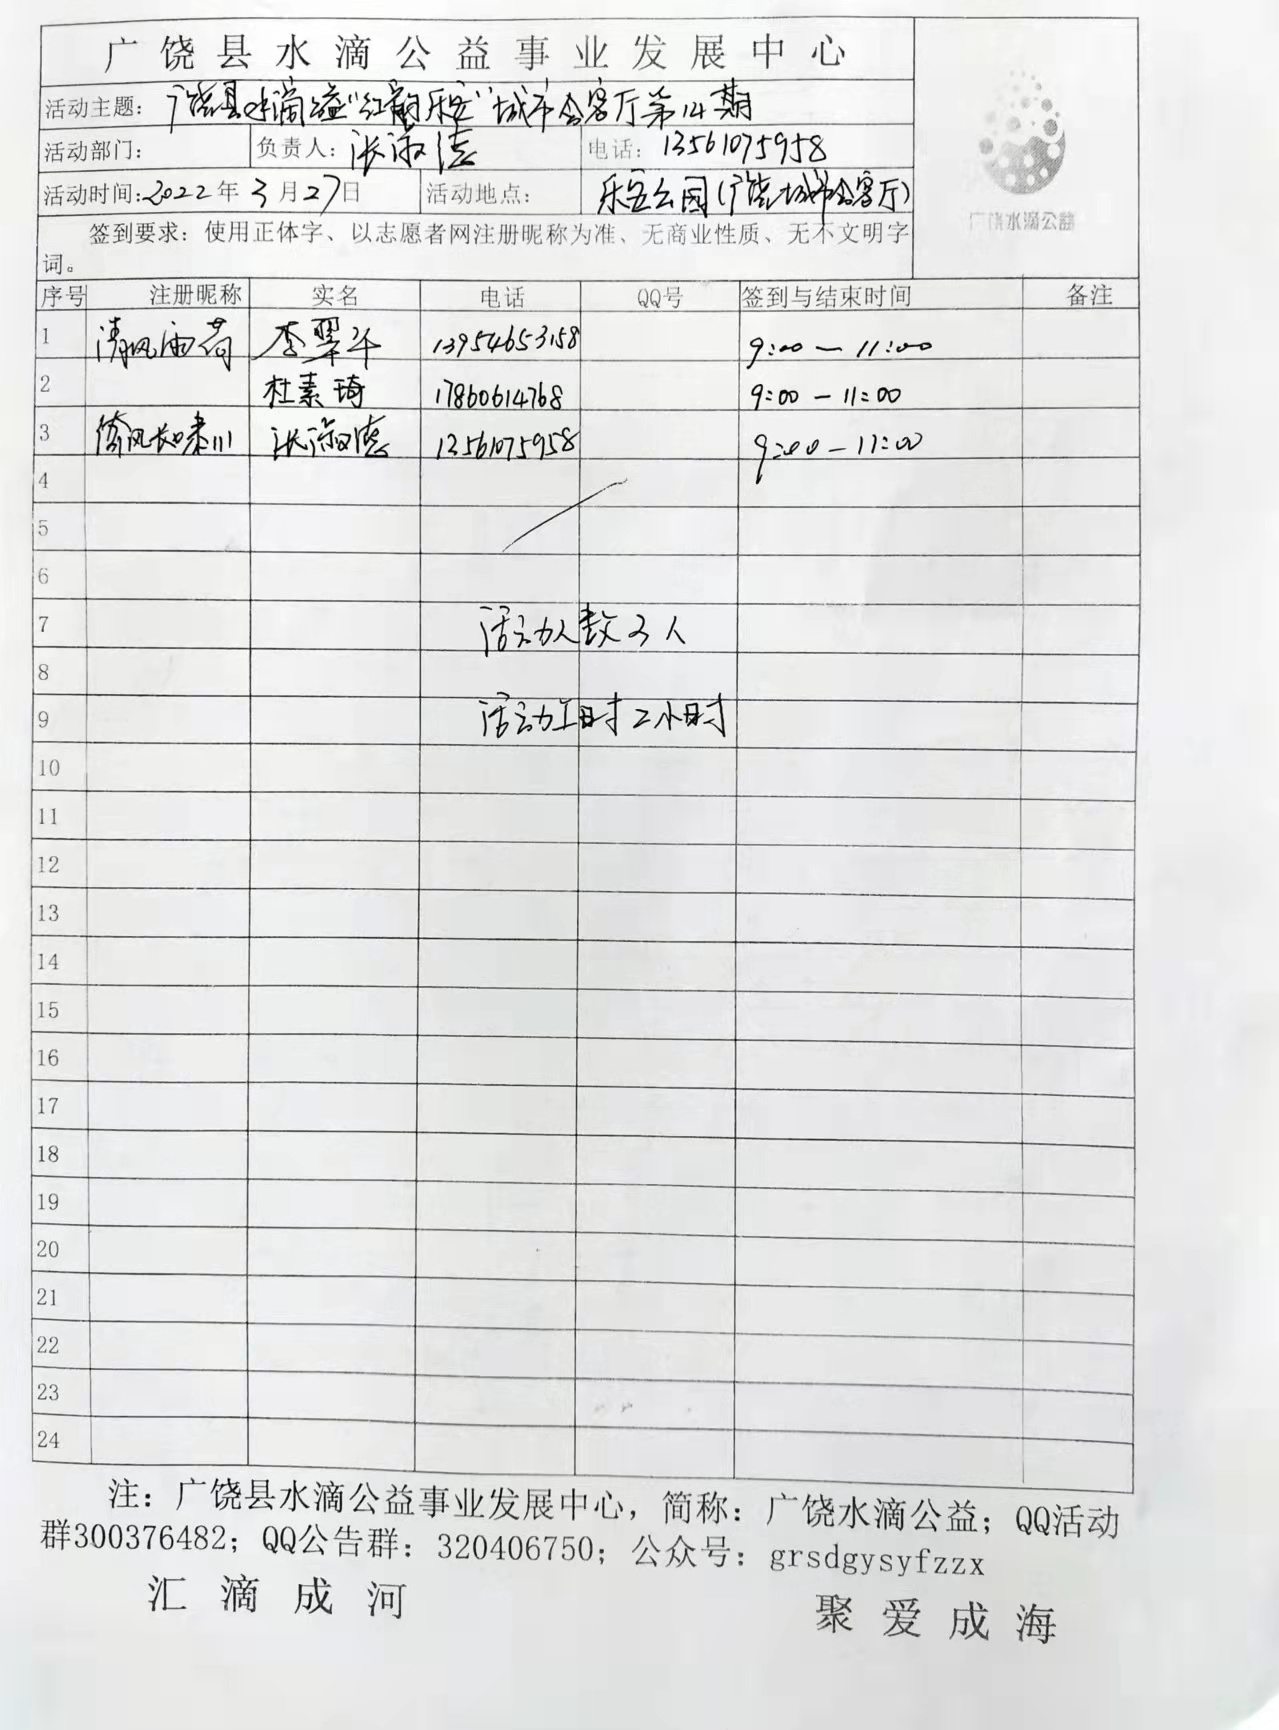 广饶县水滴公益事业发展中心
活动主题：广饶县水滴公益“红韵乐安”城市会客厅第14期
活动部门： 负责人：张淑德 电话：13561075958
活动时间：2022年3月27日 活动地点：乐安公园（广饶城市会客厅）
广饶水滴公益
签到要求：使用正体字、以志愿者网注册昵称为准、无商业性质、无不文明字
词。
序号 注册昵称 实名 电话 QQ号 签到与结束时间 备注
1 清风雨荷 李翠 13954653158 9:00—11:00
2 杜素琦 17860614768 9:00—11:00
3 风长啸川 张淑德 13561075958 9:00—11:00
4
5
6
7 活动人数3人
8
9 活动工时2小时
10
11
12
13
14
15
16
17
18
19
20
21
22
23
24
注：广饶县水滴公益事业发展中心，简称：广饶水滴公益；QQ活动
群300376482；QQ公告群：320406750；公众号：grsdgysyfzzx
汇滴成河 聚爱成海